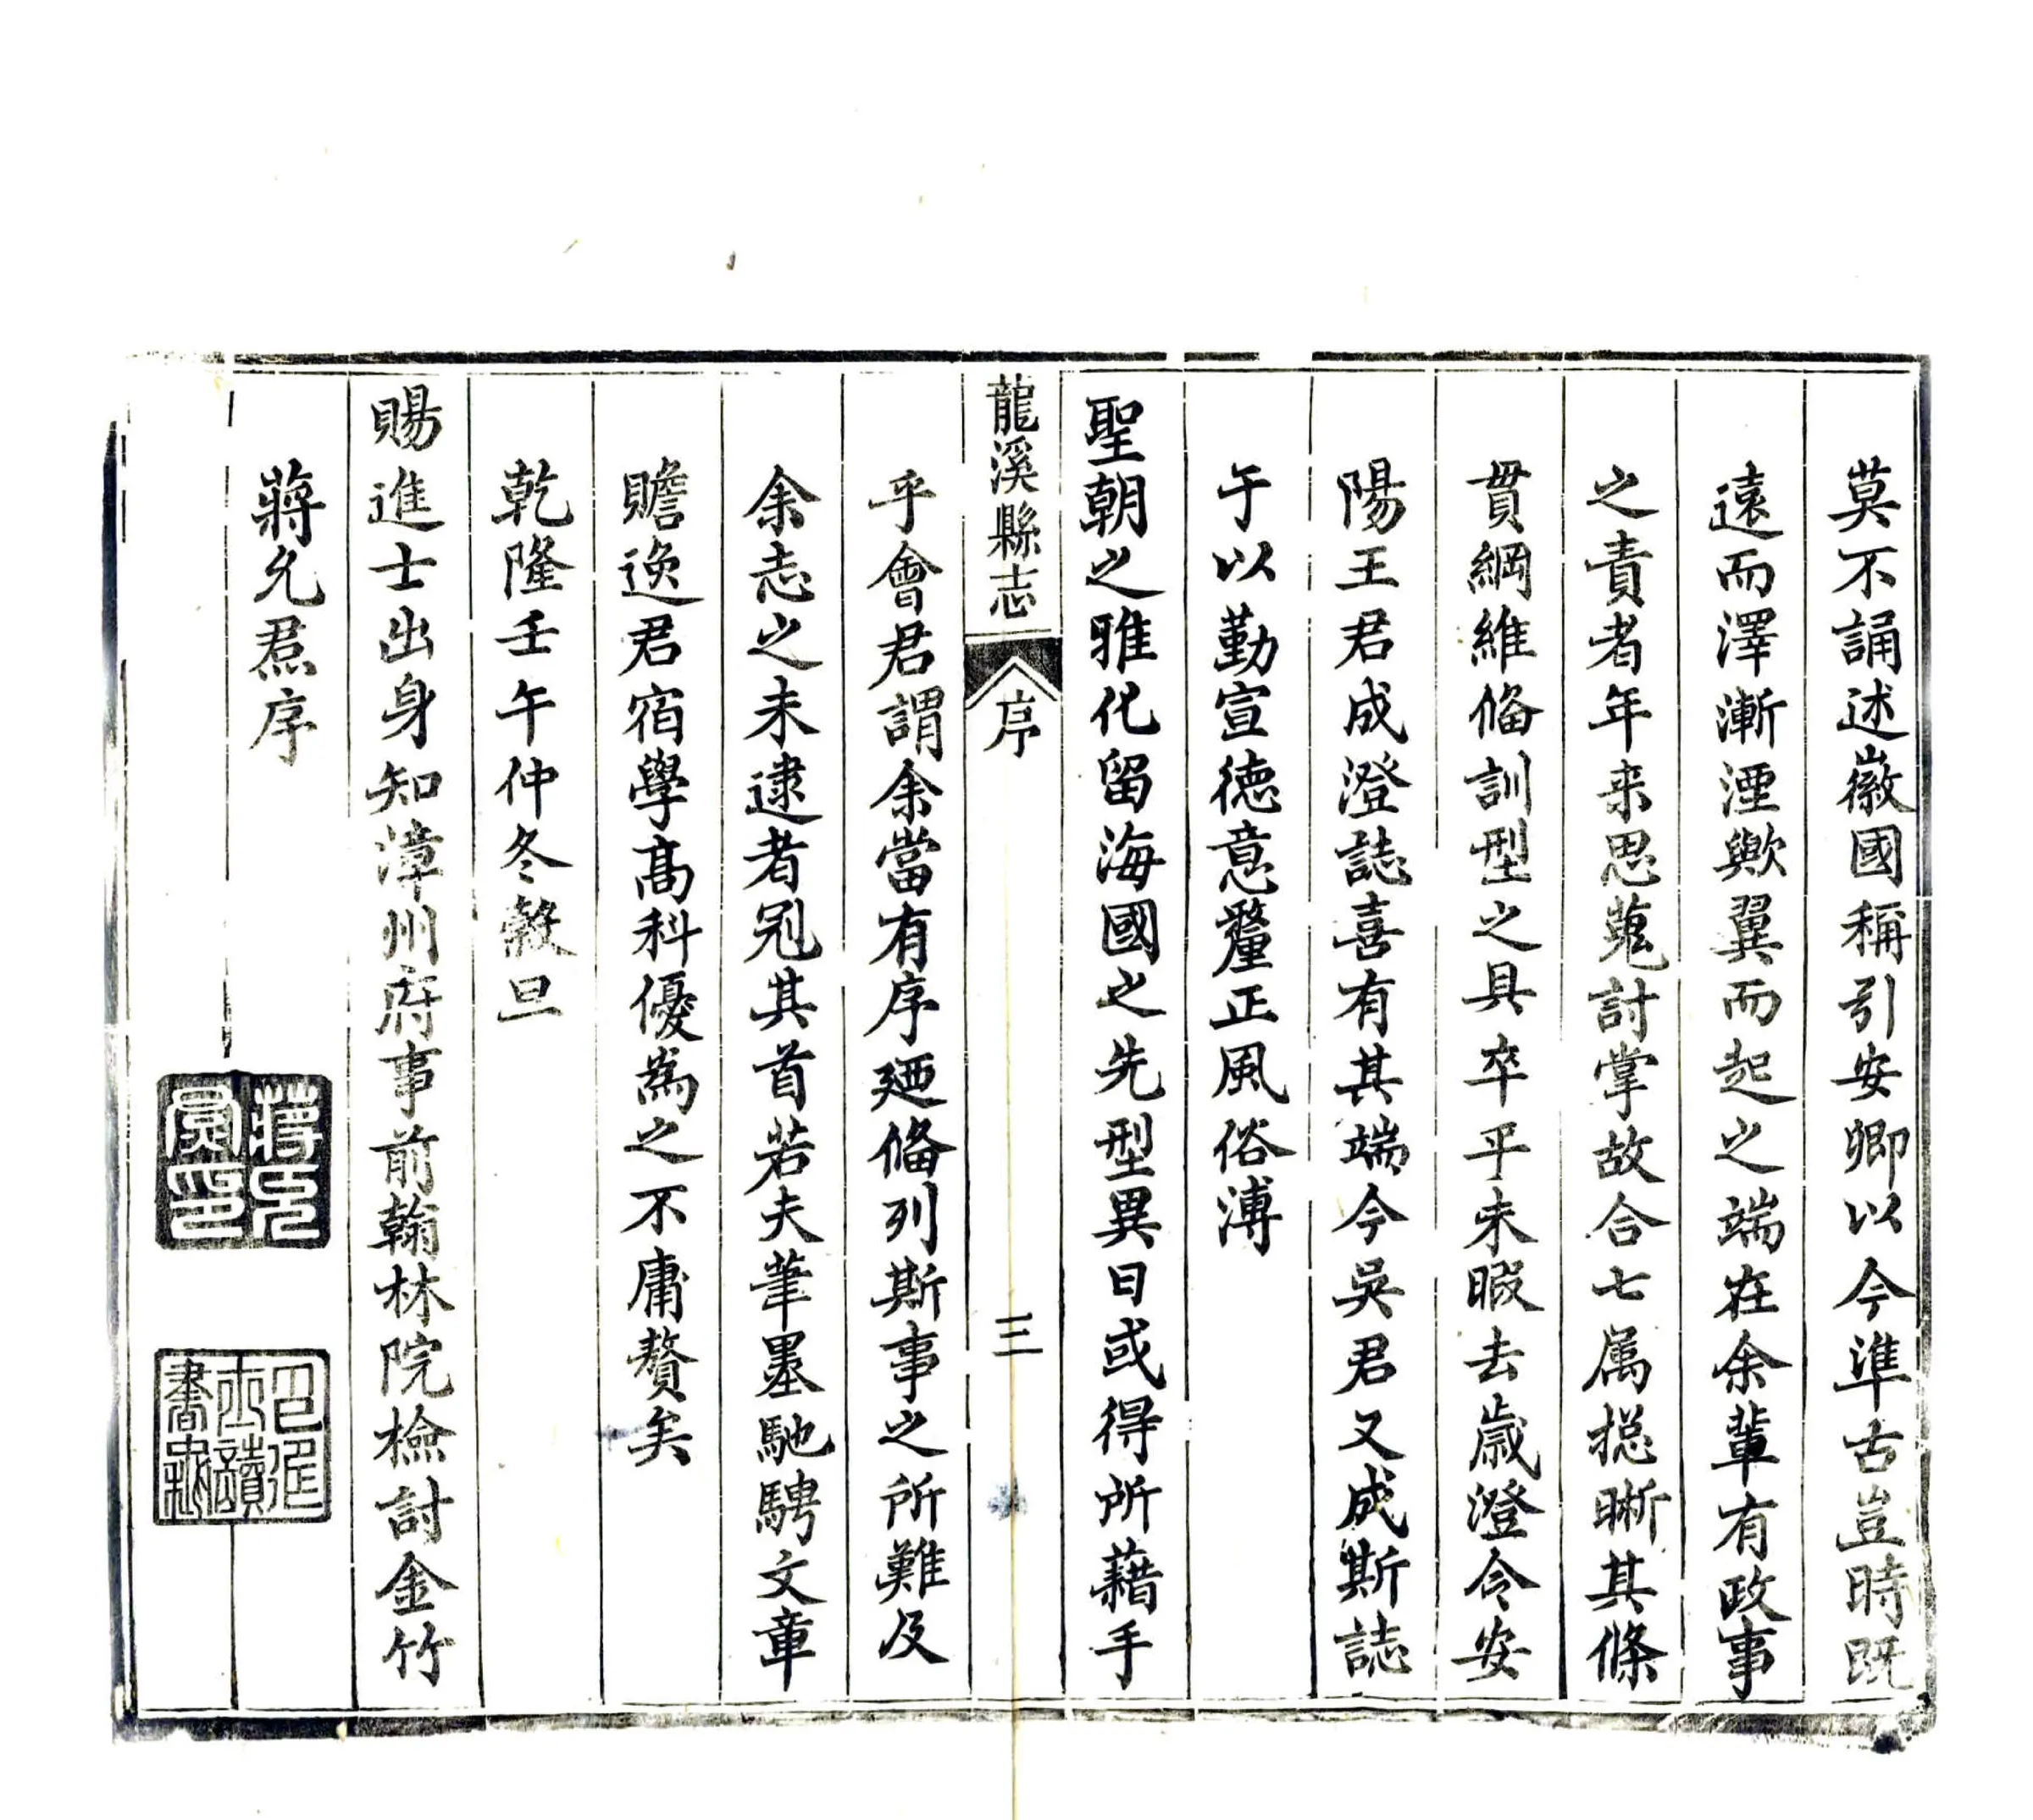 莫不誦述徽國稱引安卿以今準古豈時既
遠而澤漸湮歟翼而起之端在余輩有政事
之責者年来思蒐討掌故合七属揔晰其條
貫綱維俻訓型之具卒乎未暇去歲澄令安
陽王君成澄誌喜有其端今吳君又成斯誌
于以勤宣德意釐正風俗溥
聖朝之雅化留海國之先型異日或得所藉手
龍溪縣志 序 三
乎會君謂余當有序廼俻列斯事之所難及
余志之未逮者冠其首若夫筆墨馳騁文章
贍逸君宿學髙科優為之不庸贅矣
乾隆壬午仲冬穀旦
賜進士出身知漳州府事前翰林院檢討金竹
蔣允焄序
蔣允焄印